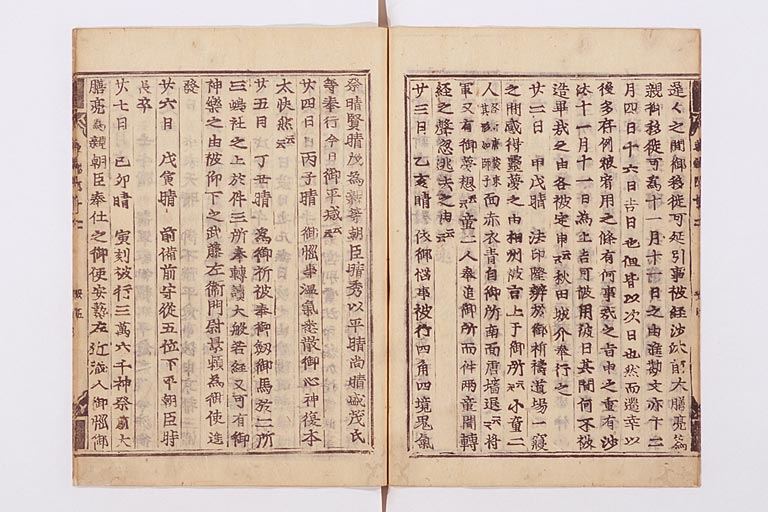 之間御移徙可延引事被經沙汰前大膳亮為
親御移徙可為十一月十一日之由進勘文亦十二
月四日十六日吉日也但皆以次日也然而遷幸以
後多存例被者用之條有何事哉之旨申之重有沙
汰十一月十一日為上吉可被用彼日其間何不被
造畢哉之由各被定申云云秋田城介奉行之
廿二日 甲戌晴 法印隆辨於御祈禱道場一寢
之間感得靈夢之由相州被言上于御所云云小童二
人 面赤衣青自御所南面唐墻退云云將
軍又有御夢想云云童二人參進御所而件兩童聞轉
經之聲忽逃去之由云云
廿三日 乙亥晴 依御惱事被行四角四境鬼氣
祭晴賢晴茂為親等朝臣晴秀以平晴尚晴職茂氏
等奉行今日御平減云云
廿四日 丙子晴 御惱事溫氣悉散御心神復本
太快然云云
廿五日 丁丑晴 為御祈被奉御劔御馬於二所
三嶋社之上於件三所奉轉讀大般若經又可有御
神樂之由被仰下之武藤左衛門尉景頼為御使進
發
廿六日 戊寅晴 前備前守從五位下平朝臣時
長卒
廿七日 己卯晴 寅刻被行三萬六千神祭前大
膳亮為親朝臣奉仕之御使安藝左近藏人御惱御